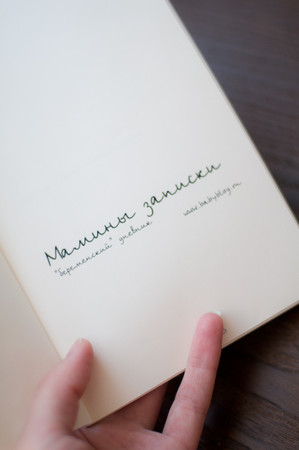 Мамины записки
"Беременский" дневник
www.babyblog.ru